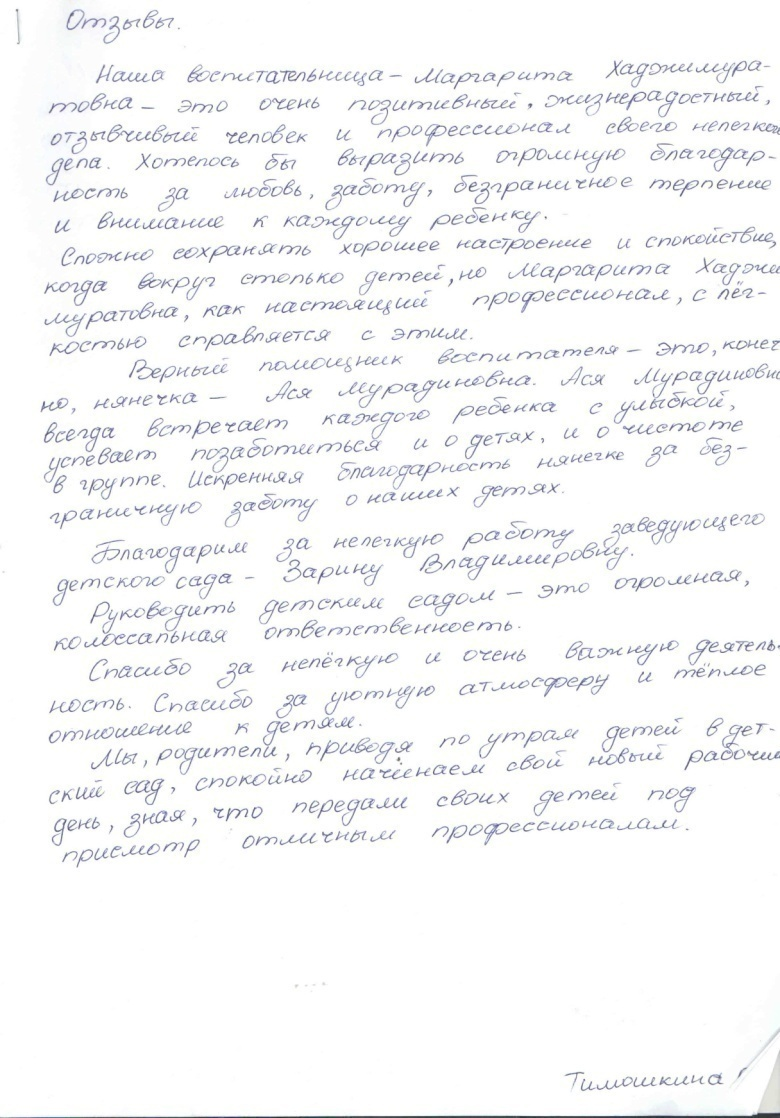 Отзывы.
Наша воспитательница – Маргарита Хаджимура-
товна – это очень позитивный, жизнерадостный,
отзывчивый человек и профессионал своего нелегкого
дела. Хотелось бы выразить огромную благодар-
ность за любовь, заботу, безграничное терпение
и внимание к каждому ребенку.
Сложно сохранять хорошее настроение и спокойствие,
когда вокруг столько детей, но Маргарита Хаджи
муратовна, как настоящий профессионал, с лёг-
костью справляется с этим.
Верный помощник воспитателя – это, конеч
но, нянечка – Ася Мурадиновна. Ася Мурадиновна
всегда встречает каждого ребенка с улыбкой,
успевает позаботиться и о детях, и о чистоте
в группе. Искренняя благодарность нянечке за без-
граничную заботу о наших детях.
Благодарим за нелегкую работу заведующего
детского сада – Зарину Владимировну.
Руководить детским садом – это огромная,
колоссальная ответственность.
Спасибо за нелёгкую и очень важную деятель-
ность. Спасибо за уютную атмосферу и тёплое
отношение к детям.
Мы, родители, приводя по утрам детей в дет-
ский сад, спокойно начинаем свой новый рабочий
день, зная, что передали своих детей под
присмотр отличным профессионалам.
Тимошкина